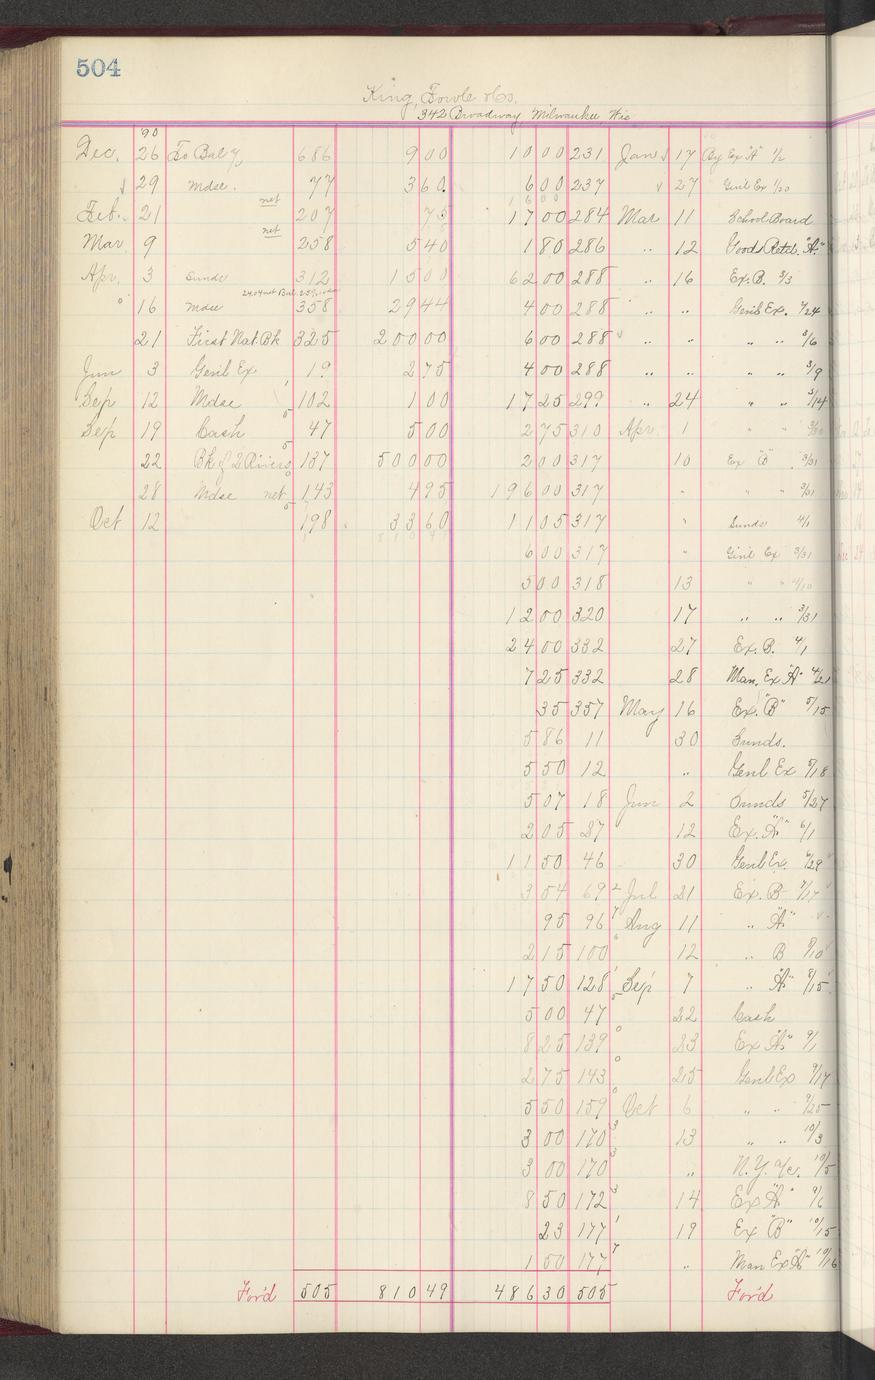 504
King, Fowle & Co.
342 Broadway, Milwaukee Wis
90
Dec. 26 To Bal 686 9 00 10 00 231 Jan 17 By Ex "A" 1/2
29 Mdse. 77 3 60 6 00 237 27 Genl Ex 1/20
Feb. 21 net 207 75 17 00 284 Mar 11 School Board
Mar 9 net 258 5 40 1 80 286 .. 12 Goods Retd. "A"
Apr. 3 Sunds 312 15 00 62 00 288 .. 16 Ex. B. 3/3
16 Mdse 358 29 44 4 00 288 .. .. Genl Ex. 2/24
21 First Nat. Bk 325 200 00 6 00 288 .. .. .. .. 3/6
Jun 3 Genl Ex 19 2 75 4 00 288 .. .. .. .. 3/9
Sep 12 Mdse 102 1 00 17 25 299 .. 24 .. .. 3/14
Sep 19 Cash 47 5 00 2 75 310 Apr. 1 " "
22 Bk of 2 Rivers 137 500 00 2 00 317 10 Ex "B" 3/31
28 Mdse net 143 4 95 196 00 317 " " " 3/31
Oct 12 198 33 60 11 05 317 " Sunds 4/1
6 00 317 " Genl Ex 3/31
5 00 318 13 " " 4/10
12 00 320 17 .. .. 3/31
24 00 332 27 Ex. B. 4/1
7 25 332 28 Man. Ex "A" 4/21
35 357 May 16 Ex. "B" 5/15
5 86 11 30 Sunds.
5 50 12 .. Genl Ex 5/18
5 07 18 Jun 2 Sunds 5/27
2 05 37 12 Ex. "A" 6/1
11 50 46 30 Genl Ex. 6/29
3 54 69 Jul 21 Ex. B 7/17
95 96 Aug 11 .. "A"
2 15 100 12 .. B 8/10
17 50 128 Sep 7 .. "A" 8/15
5 00 47 22 Cash
8 25 139 23 Ex "A" 9/1
2 75 143 25 Genl Ex 9/17
5 50 159 Oct 6 .. .. 9/25
3 00 170 13 .. .. 10/3
3 00 170 .. N.Y. a/c. 10/5
8 50 172 14 Ex "A" 9/6
23 177 19 Ex "B" 10/15
1 50 177 .. Man Ex "A" 10/16
For'd 505 810 49 486 30 505 For'd